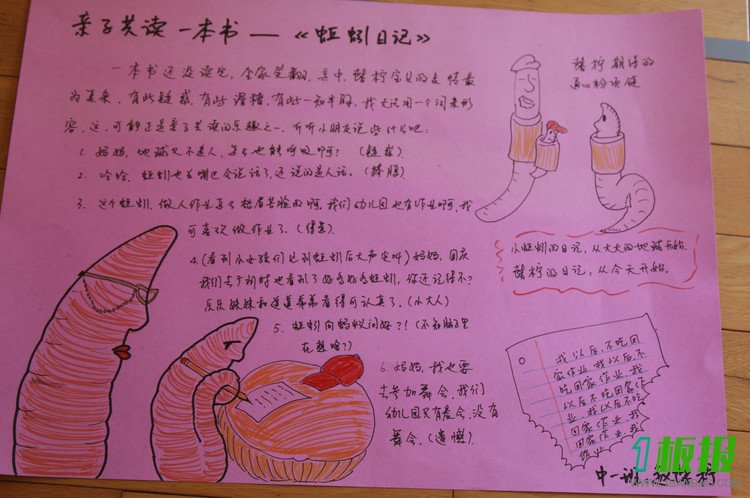 亲子共读一本书——《蚯蚓日记》
一本书还没读完，全家笑翻，其中，馨柠宝贝的表情最
为丰来，有些疑惑，有些滑稽，有些一知半解，我无法用一个词来形
容，这，可能正是亲子共读的乐趣之一，听听小朋友说些什么吧：
1. 妈妈，地球又不是人，怎么也能呼吸啊？（疑惑）
2. 哈哈，蚯蚓也长嘴巴会说话了，还说的是人话。
3. 这个蚯蚓，做人作业啊，我们幼儿园也有作业啊，我
可喜欢做作业了。（得意）
4.（看到小女孩们见到蚯蚓后大声尖叫）妈妈，国庆
我们去乡下时也看到了好多好多蚯蚓，你还记得不？
乐乐姐姐和道道弟弟看得可认真了。（小大人）
5. 蚯蚓向蚂蚁问好？！（不知脑子里
在想啥？）
6. 妈妈，我也要
去参加舞会，我们
幼儿园只有晨会，没有
舞会。（遗憾）
馨柠期待的
小蚯蚓的日记，从大大的地球开始，
馨柠的日记，从今天开始。
我以后，不吃回
家作业，我以后，不
吃回家作业，我
以后不吃回家作
业，我以后不吃
回家作业，我
回家作业，
作业
中一班
1板报